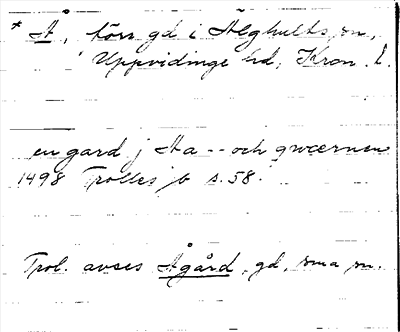 * Å, förr gd i Älghults sn,
Uppvidinge hd, Kron. l.
en gard j Aa -- och qwærnen
1498 Trolles jb s. 58.
Trol. avses Ågård, gd, sma sn.